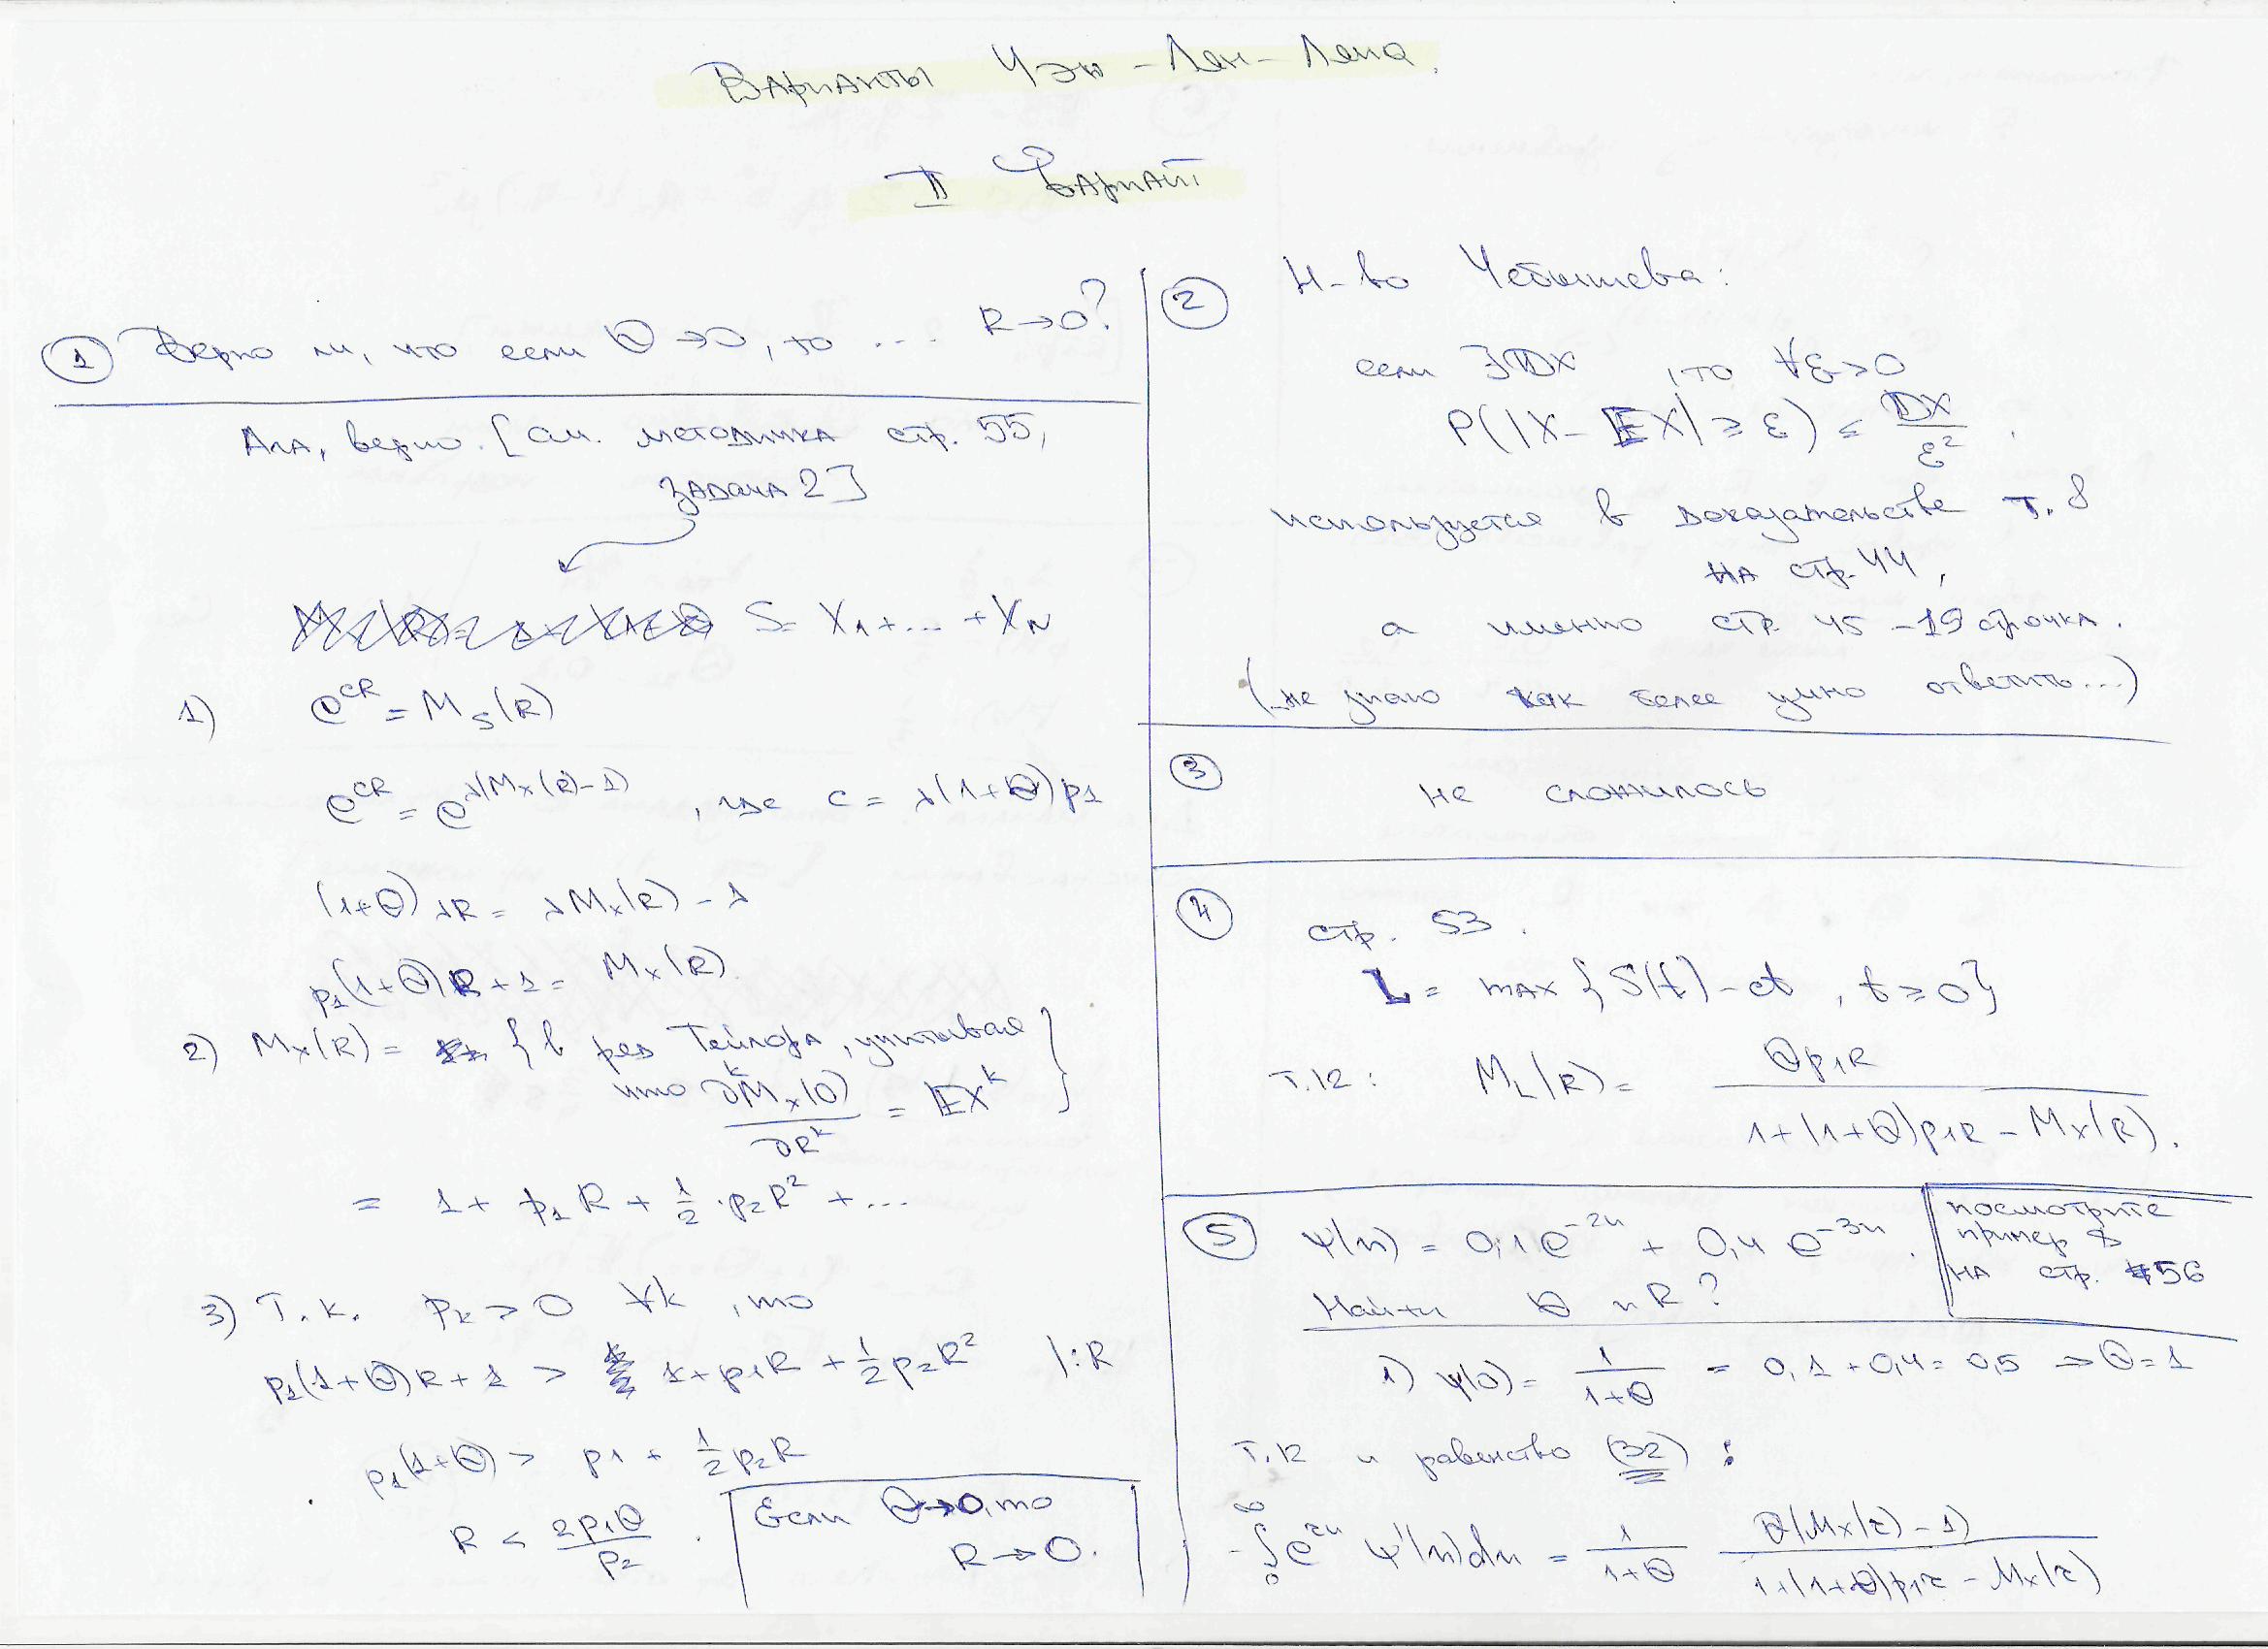 Варианты Чэн-Лен-Лена.
II Вариант
① Верно ли, что если Θ→0, то ... R→0?
Ага, верно. [см. методичка стр. 55,
задача 2]
S = X₁+...+X_N
1) e^{cR} = M_S(R)
e^{cR} = e^{λ(M_X(R)-1)}, где c = λ(1+Θ)p₁
(1+Θ)λR = λM_X(R) - λ
p₁(1+Θ)R+1 = M_X(R)
2) M_X(R) = {в ряд Тейлора, учитывая
что ∂^k M_X(0)/∂R^k = EX^k}
= 1 + p₁R + 1/2·p₂R² + ...
3) Т.к. p_k > 0 ∀k, то
p₁(1+Θ)R+1 > 1+p₁R + 1/2 p₂R² |:R
p₁(1+Θ) > p₁ + 1/2 p₂R
R < 2p₁Θ/p₂.
Если Θ→0, то
R→0.
② Н-во Чебышева:
если ∃DX, то ∀ε>0
P(|X-EX| ≥ ε) ≤ DX/ε².
используется в доказательстве т. 8
на стр. 44,
а именно стр. 45 - 19 строчка.
(не знаю как более умно ответить...)
③ не сложилось
④ стр. 53.
L = max{S(t)-ct, t≥0}
Т.12: M_L(R) = Θp₁R/(1+(1+Θ)p₁R - M_X(R)).
⑤ ψ(u) = 0,1e^{-2u} + 0,4e^{-3u}.
Найти Θ и R?
посмотрите
пример 8
на стр. 56
1) ψ(0) = 1/(1+Θ) = 0,1+0,4 = 0,5 ⇒ Θ=1
Т.12 и равенство (32):
-∫₀^∞ e^{ru} ψ'(u)du = 1/(1+Θ) Θ(M_X(r)-1)/(1+(1+Θ)p₁r - M_X(r))